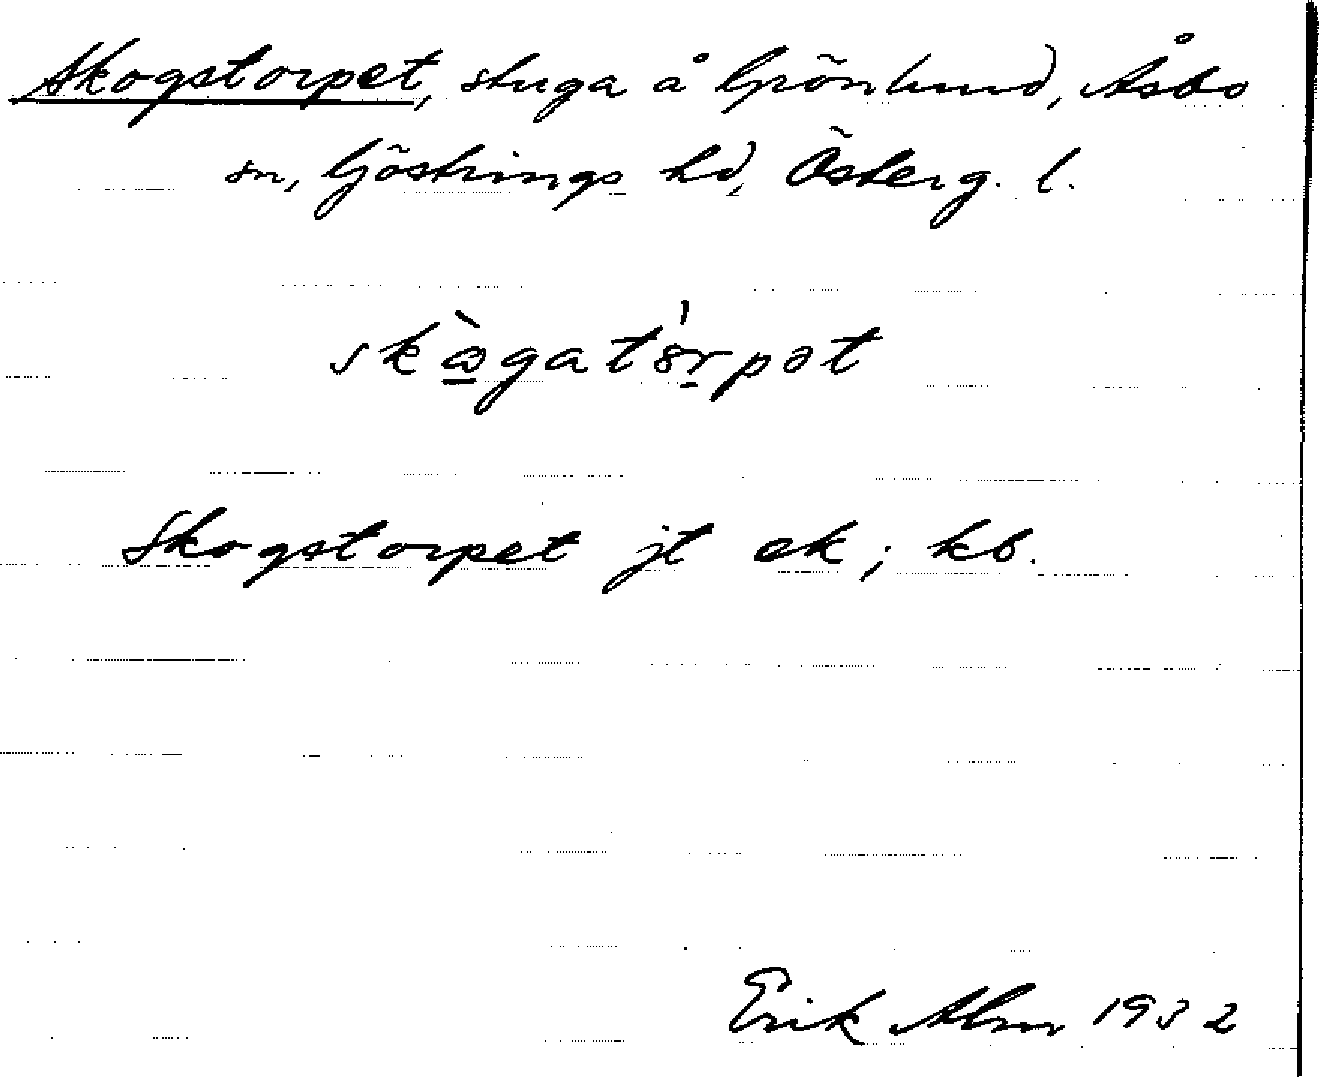 Skogstorpet, stuga å Grönlund, Åsbo
sn, Göstrings hd, Österg. l.
skògatórpət
Skogstorpet jt ek; kb.
Erik Alm 1932